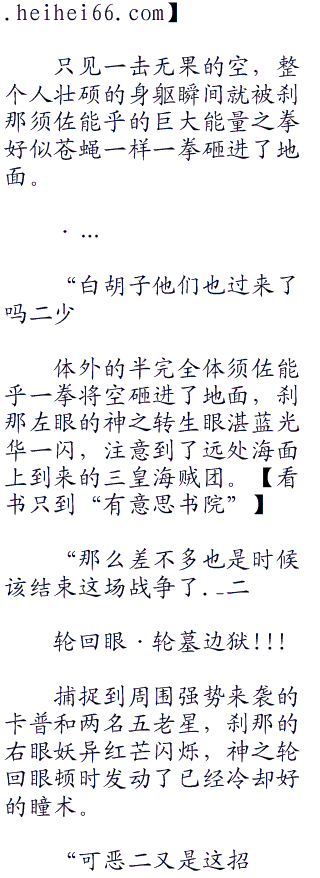 .heihei66.com】
只见一击无果的空，整
个人壮硕的身躯瞬间就被刹
那须佐能乎的巨大能量之拳
好似苍蝇一样一拳砸进了地
面。
· …
“白胡子他们也过来了
吗二少
体外的半完全体须佐能
乎一拳将空砸进了地面，刹
那左眼的神之转生眼湛蓝光
华一闪，注意到了远处海面
上到来的三皇海贼团。【看
书只到“有意思书院”】
“那么差不多也是时候
该结束这场战争了._二
轮回眼·轮墓边狱!!!
捕捉到周围强势来袭的
卡普和两名五老星，刹那的
右眼妖异红芒闪烁，神之轮
回眼顿时发动了已经冷却好
的瞳术。
“可恶二又是这招